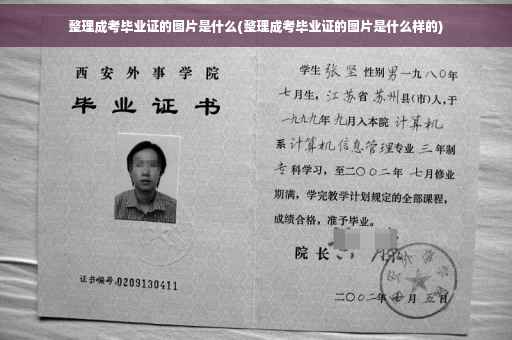 整理成考毕业证的图片是什么(整理成考毕业证的图片是什么样的)
西安外事学院
毕业证书
证书编号:0209130411
学生 张坚 性别 男 一九八〇年
七月生, 江苏省 苏州县(市)人,于
一九九九年 九月入本院 计算机
系 计算机信息管理专业 三年制
专科学习,至二〇〇二年 七月修业
期满,学完教学计划规定的全部课程,
成绩合格,准予毕业。
院长
二〇〇二年 月五日